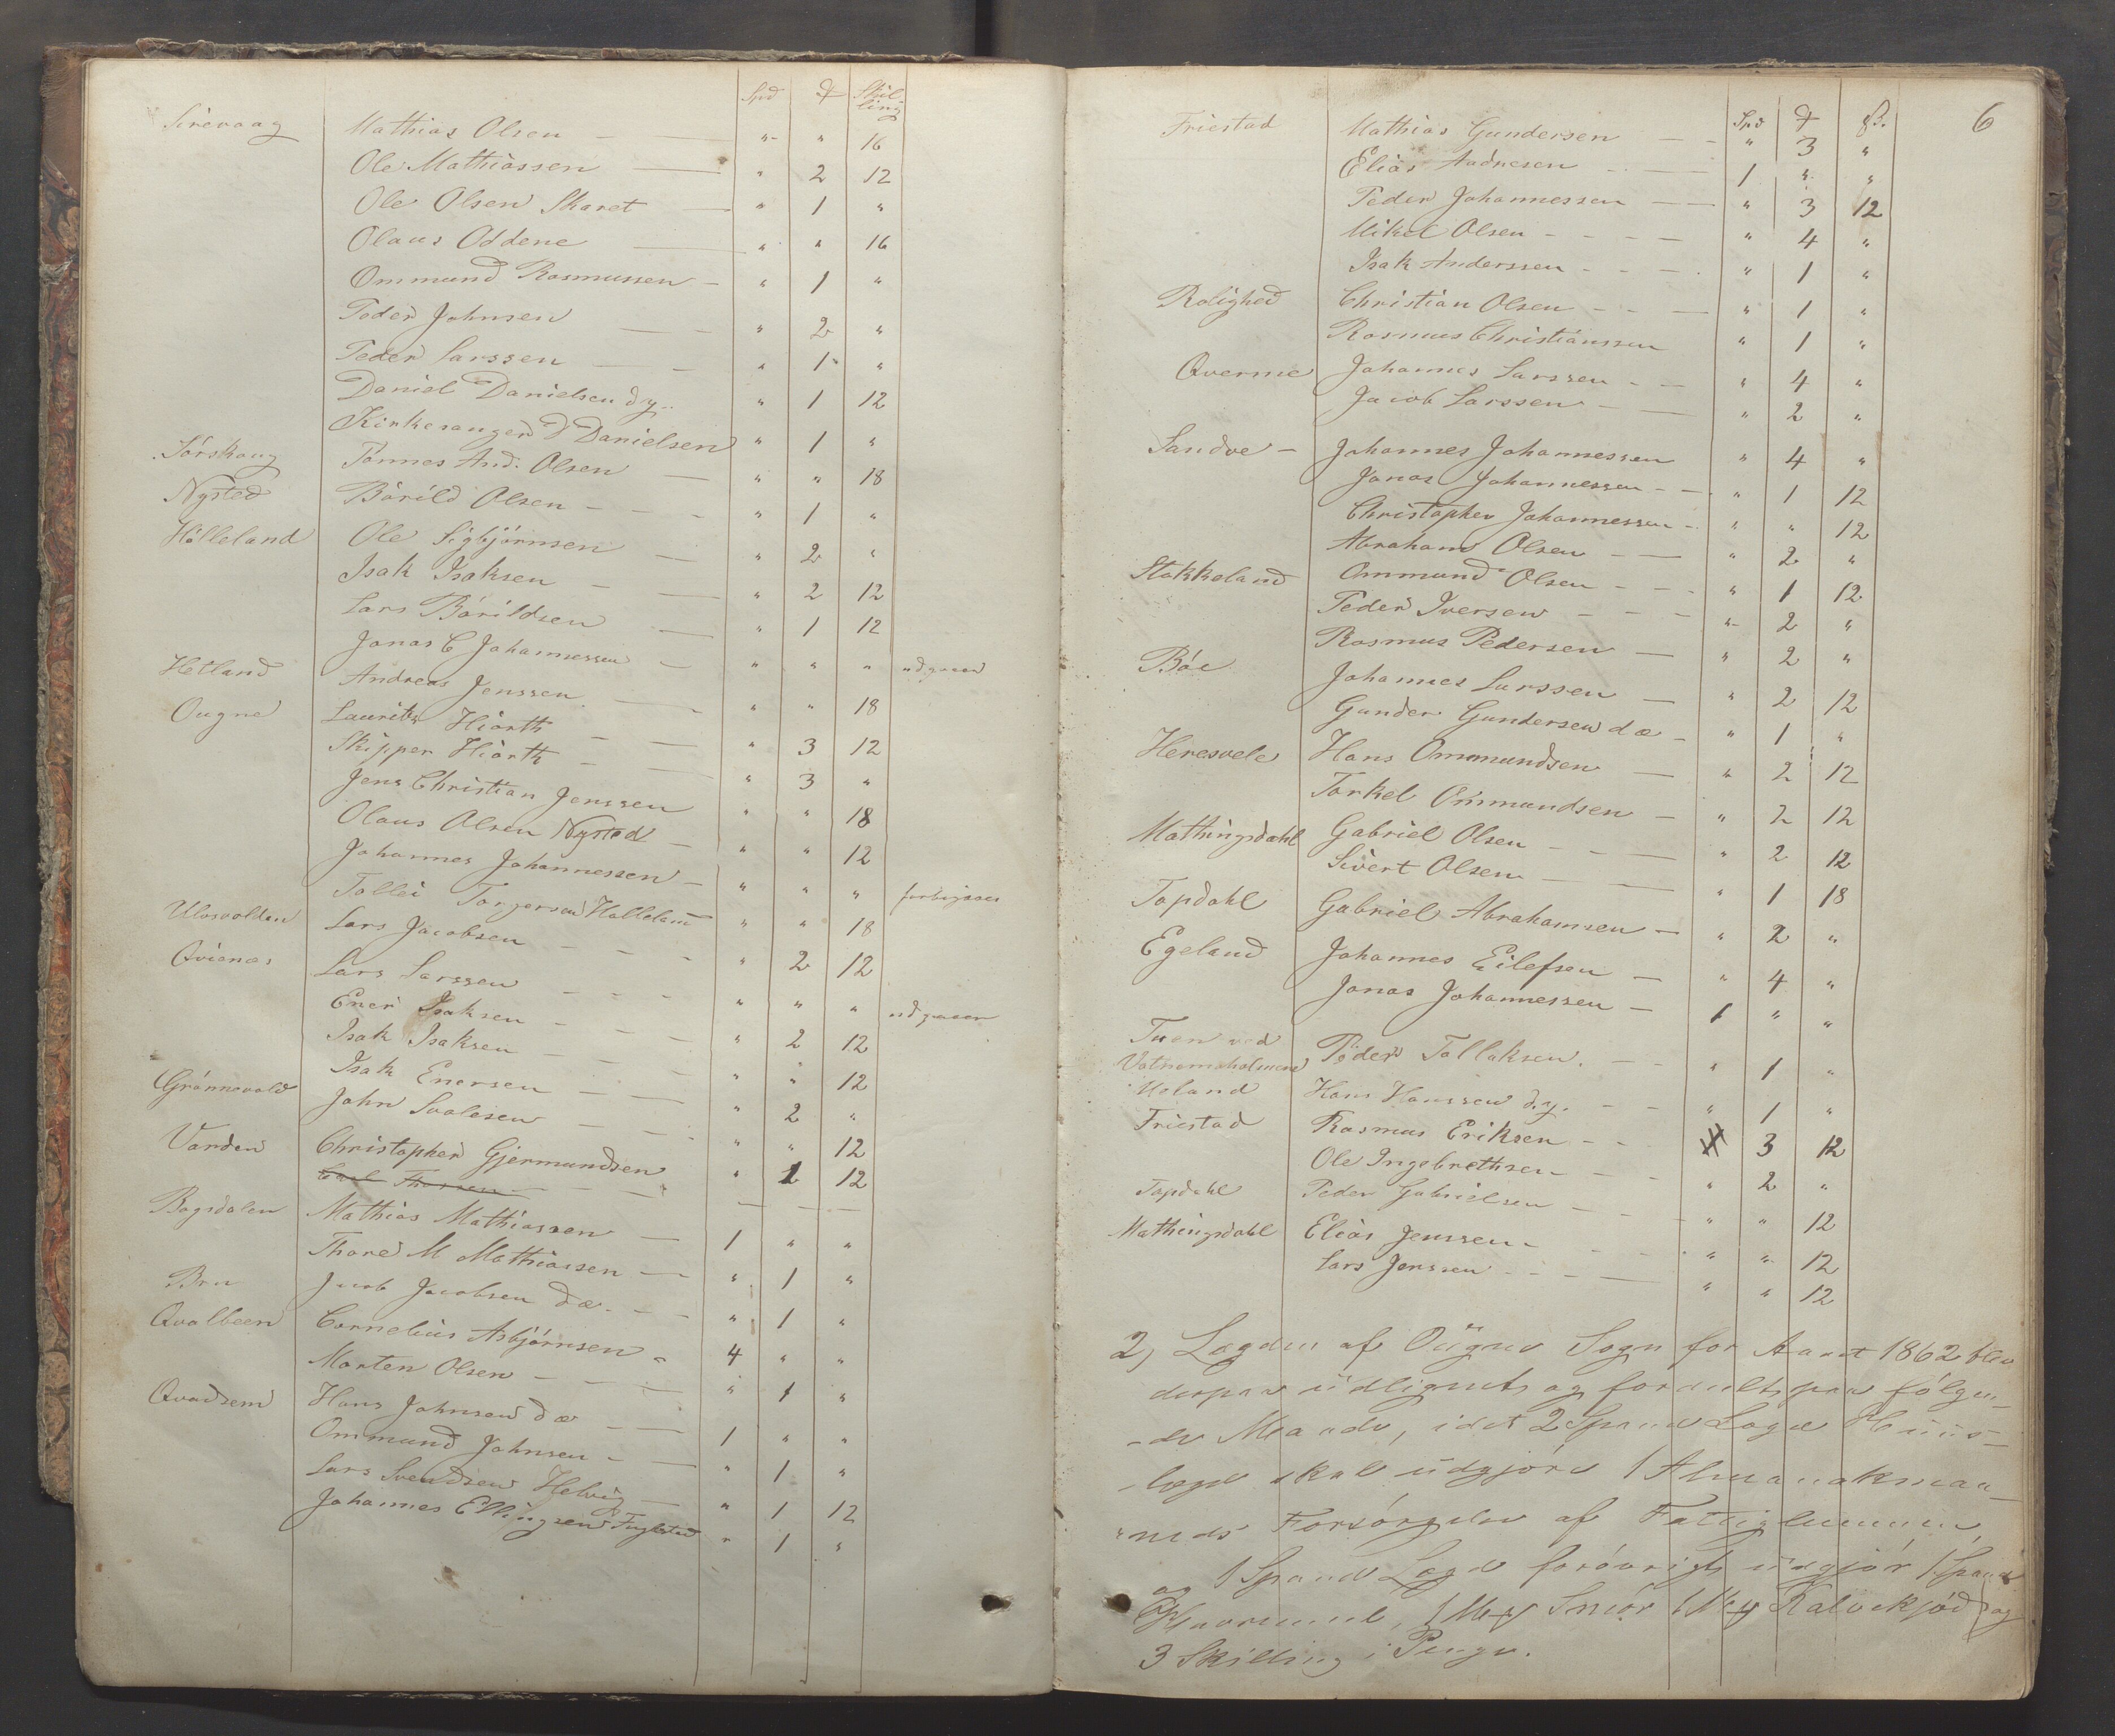 Spd ₰ Skil-
ling
Sirevaag Mathias Olsen — " " 16
Ole Mathiassen — " 2 12
Ole Olsen Skaret — " 1 "
Olaus Oddene — " " 16
Ommund Rasmussen — " 1 "
Peder Johnsen — " 2 "
Peder Larssen — " 1 "
Daniel Danielsen d.y. " 1 12
Kirkesanger D Danielsen " 1 "
Sørskoug Tønnes And. Olsen — " " 18
Nysted Bårild Olsen — " 1 "
Hølleland Ole Sigbjørnsen — " 2 "
Isak Isaksen — " 2 12
Lars Bårildsen — " 1 12
Jonas C Johannessen — " " " udgaaer
Hetland Andreas Jenssen — " " 18
Ougne Lauritz Hiorth — " 3 12
Skipper Hiorth — " 3 "
Jens Christian Jenssen " " 18
Olaus Olsen Nysted — " " 12
Johannes Johannessen — " " " forbigaaes
Tollei Torgersen Hølleland " " 18
Ulvsvolden Lars Jacobsen — " 2 12
Qvienæs Lars Larssen — " " " udgaaer
Ener Isaksen — " 2 12
Isak Isaksen — " " 12
Isak Enersen — " 2 "
Grønnevold John Svalesen — " " 12
Varden Christopher Gjermundsen " 1 12
Carl Thossen — — —
Bogsdalen Mathias Mathiassen — 1 " "
Thore M Mathiassen — " 1 "
Bru Jacob Jacobsen d æ. — " 1 "
Qvalbeen Cornelius Asbjørnsen " 4 " "
Morten Olsen — " 1 "
Qvadsem Hans Johnsen d æ — 1 " "
Ommund Johnsen — " 1 "
Lars Svendsen Helvig — " 1 12
Johannes Ellingsen Fuglestad " 1 "
6
Spd ₰ ß.
Friestad Mathias Gundersen — " 3 "
Elias Andresen — 1 " "
Peder Johannessen — " 3 12
Mikel Olsen — " 4 "
Isak Anderssen — " 1 "
Rolighed Christian Olsen — " 1 "
Rasmus Christianssen " 1 "
Qverme Johannes Larssen — " 4 "
Jacob Larssen — " 2 "
Sandve — Johannes Johannessen " 4 "
Jonas Johannessen — " 1 12
Christopher Johannessen — " " 12
Abraham Olsen — " 2 "
Stokkeland Ommund Olsen — " 1 12
Peder Iversen — " 2 "
Rasmus Pedersen — " 2 "
Bøe Johannes Larssen — " 2 12
Gunder Gundersen d æ — " 1 "
Heresvele Hans Ommundsen — " 2 12
Torkel Ommundsen — " 2 12
Mathingsdahl Gabriel Olsen — " 2 12
Sivert Olsen — " 1 18
Tapdahl Gabriel Abrahamsen — " 2 "
Egeland Johannes Eilefsen — " 4 "
Jonas Johannessen — 1 " "
Tuen ved
Vatnemsholmene Peder Tollaksen. — " 1 "
Ueland Hans Hanssen d.y. — " 1 "
Friestad Rasmus Eriksen — 3 12
Ole Ingebrethsen — " 2 "
Tapdahl Peder Gabrielsen — " " 12
Mathingsdahl Elias Jenssen — " " 12
Lars Jenssen — " " 12
2) Lægden af Ougne Sogn for Aaret 1862 blev
derpaa udlignet og fordelt paa følgen-
-de Maade, idet 2 Spand Løgd Huus-
-lægd skal udgjøre 1 Almanakmaa-
"neds Forsørgelse af Fattiglemmer,
1 Spand Løgd forøvrigt udgjør 1 Spand
Havremeel, 1 Mrk Smør 1 Mrk Kalvekjød og
3 Skilling i Penge.